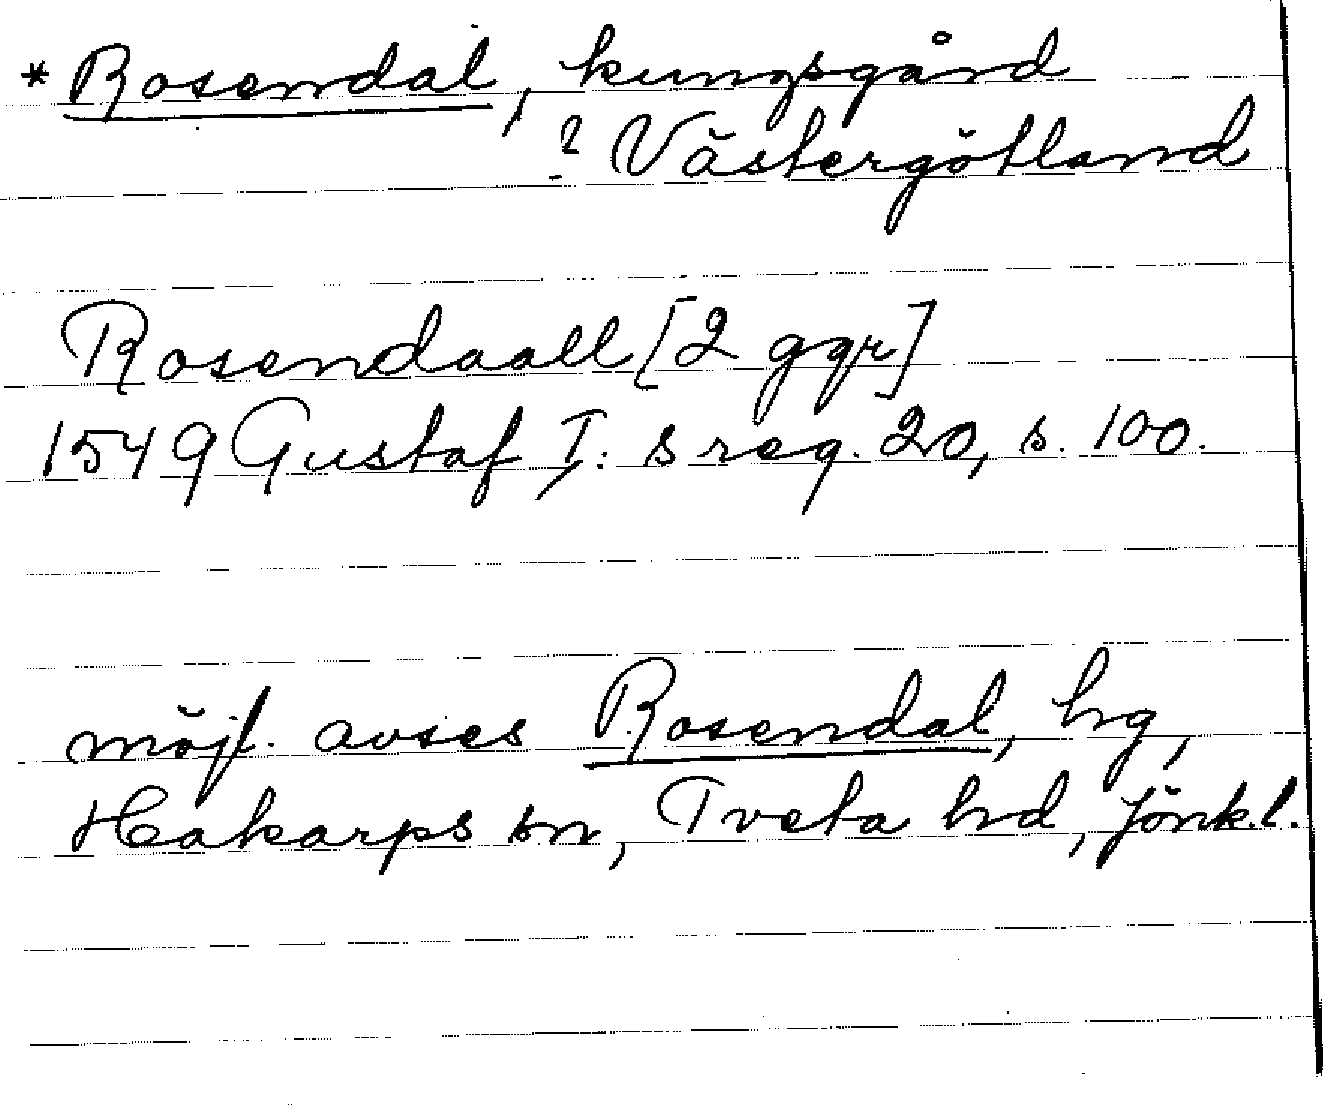 *Rosendal, kungsgård
? Västergötland
Rosendaall [2 ggr]
1549 Gustaf I:s reg. 20, s. 100.
möjl. avses Rosendal, hg,
Hakarps sn, Tveta hd, Jönk.l.